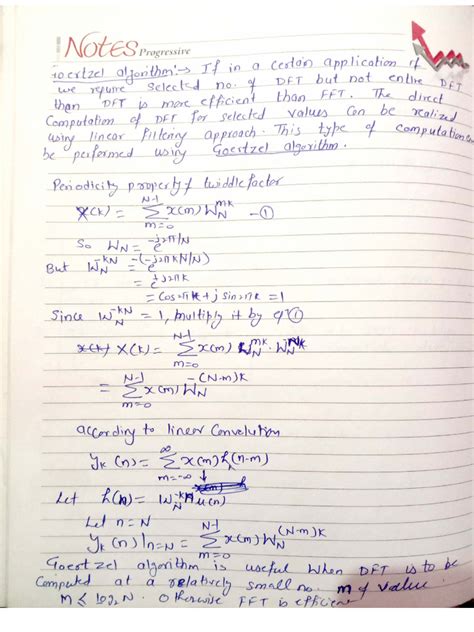 NOTES Progressive
Goertzel algorithm:→ If in a certain application if
we require selected no. of DFT but not entire DFT
than DFT is more efficient than FFT. The direct
Computation of DFT for selected values can be realized
using linear filtering approach. This type of computation can
be performed using Goertzel algorithm.
Periodicity property of twiddle factor
X(k) = N-1 Σ m=0 x(m) W_N^mk —①
So W_N = e^-j2π/N
But W_N^-kN = e^-(-j2πkN/N)
= e^j2πk
= Cos 2πk + j sin 2πk = 1
Since W_N^-kN = 1, multiply it by eq ①
X(k) = N-1 Σ m=0 x(m) W_N^mk . W_N^-Nk
= N-1 Σ m=0 x(m) W_N^-(N-m)k
according to linear Convolution
y_k(n) = ∞ Σ m=-∞ x(m) h_k(n-m)
Let h(n) = W_N^-kn u(n)
Let n = N
y_k(n)|n=N = N-1 Σ m=0 x(m) W_N^(N-m)k
Goertzel algorithm is useful when DFT is to be
Computed at a relatively small no. m of value.
M ≤ log2 N. Otherwise FFT is efficient